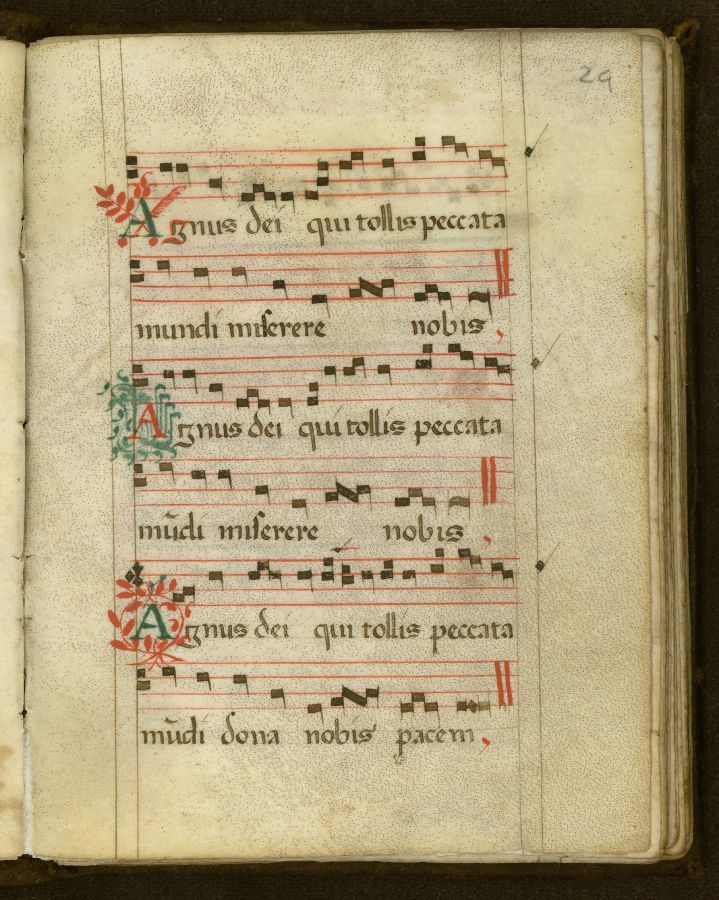 29
Agnus dei qui tollis peccata
mundi miserere nobis,
Agnus dei qui tollis peccata
mūdi miserere nobis,
Agnus dei qui tollis peccata
mūdi dona nobis pacem,